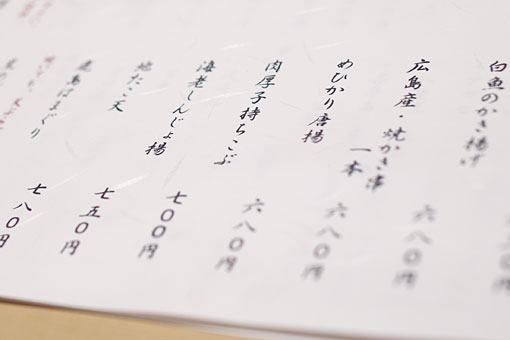 白魚のかき揚げ
広島産・焼かき串 一本
六八〇円
めひかり唐揚
六八〇円
肉厚子持ちこぶ
六八〇円
海老しんじょ揚
七〇〇円
地だこ天
七五〇円
鹿島はまぐり
七八〇円